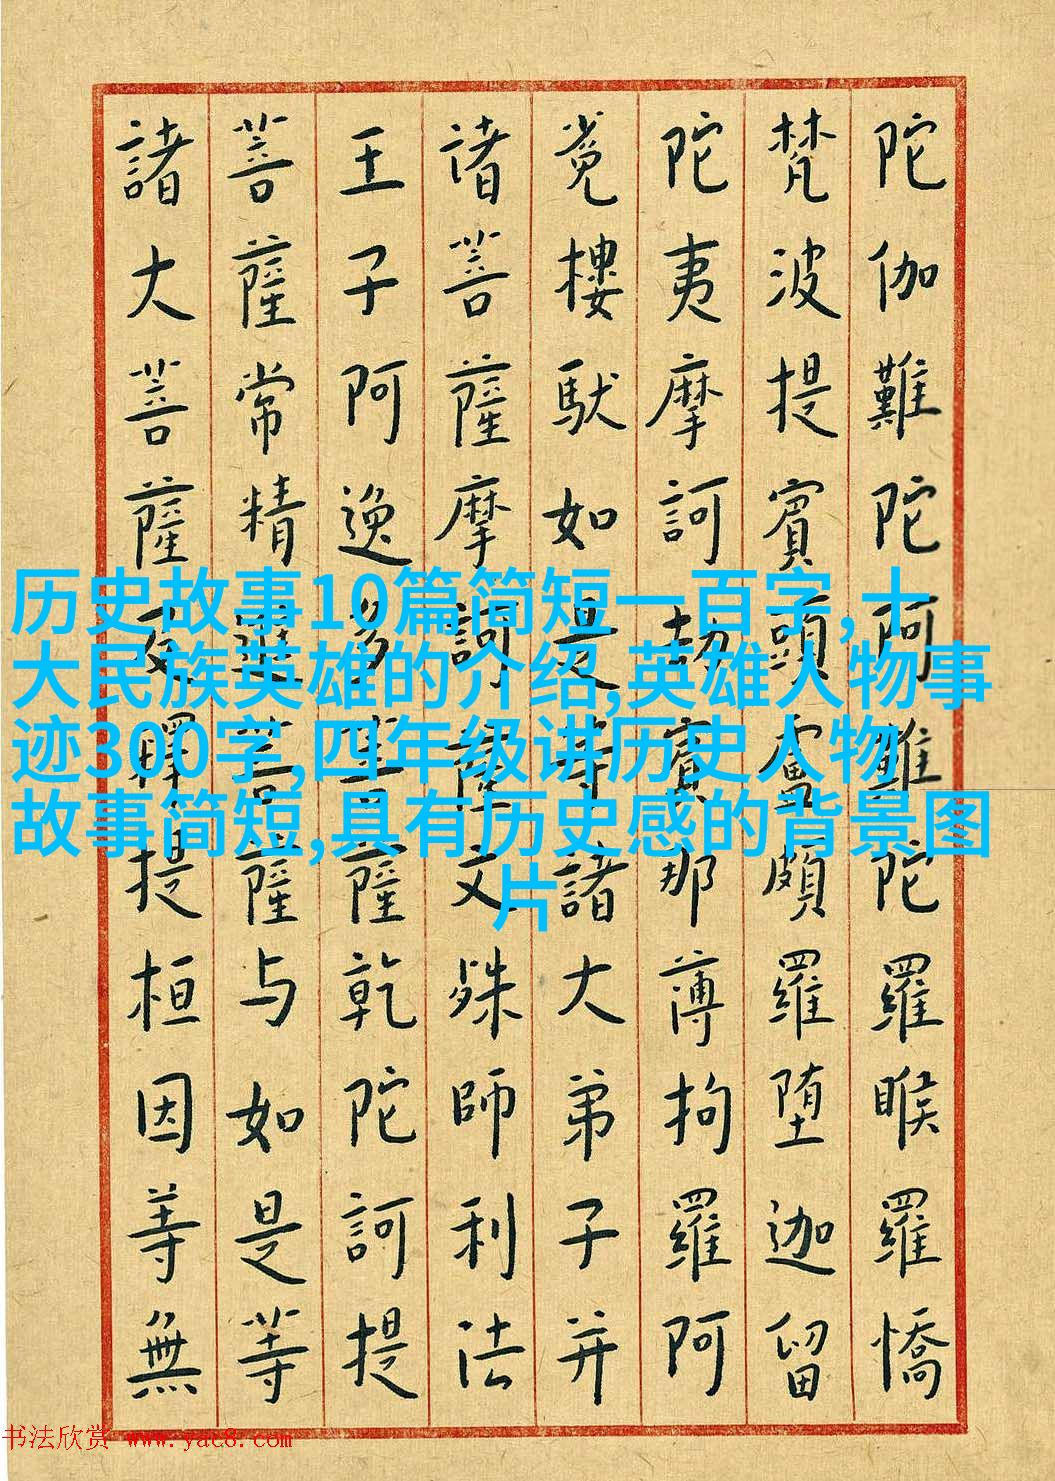 陀伽難陀阿難陀羅睺羅憍
梵波提賓頭盧頗羅堕迦留
陀夷摩訶劫賓那薄拘羅阿
㝹樓馱如是等諸大弟子并
诸菩薩摩訶薩文殊師利法
王子阿逸多菩薩乾陀訶提
菩薩常精進菩薩与如是等
諸大菩薩及釋提桓因等無
历史故事10篇简短一百字,十
大民族英雄的介绍,英雄人物事
迹300字,四年级讲历史人物
故事简短,具有历史感的背景图
片
书法欣赏 www.yac8.com